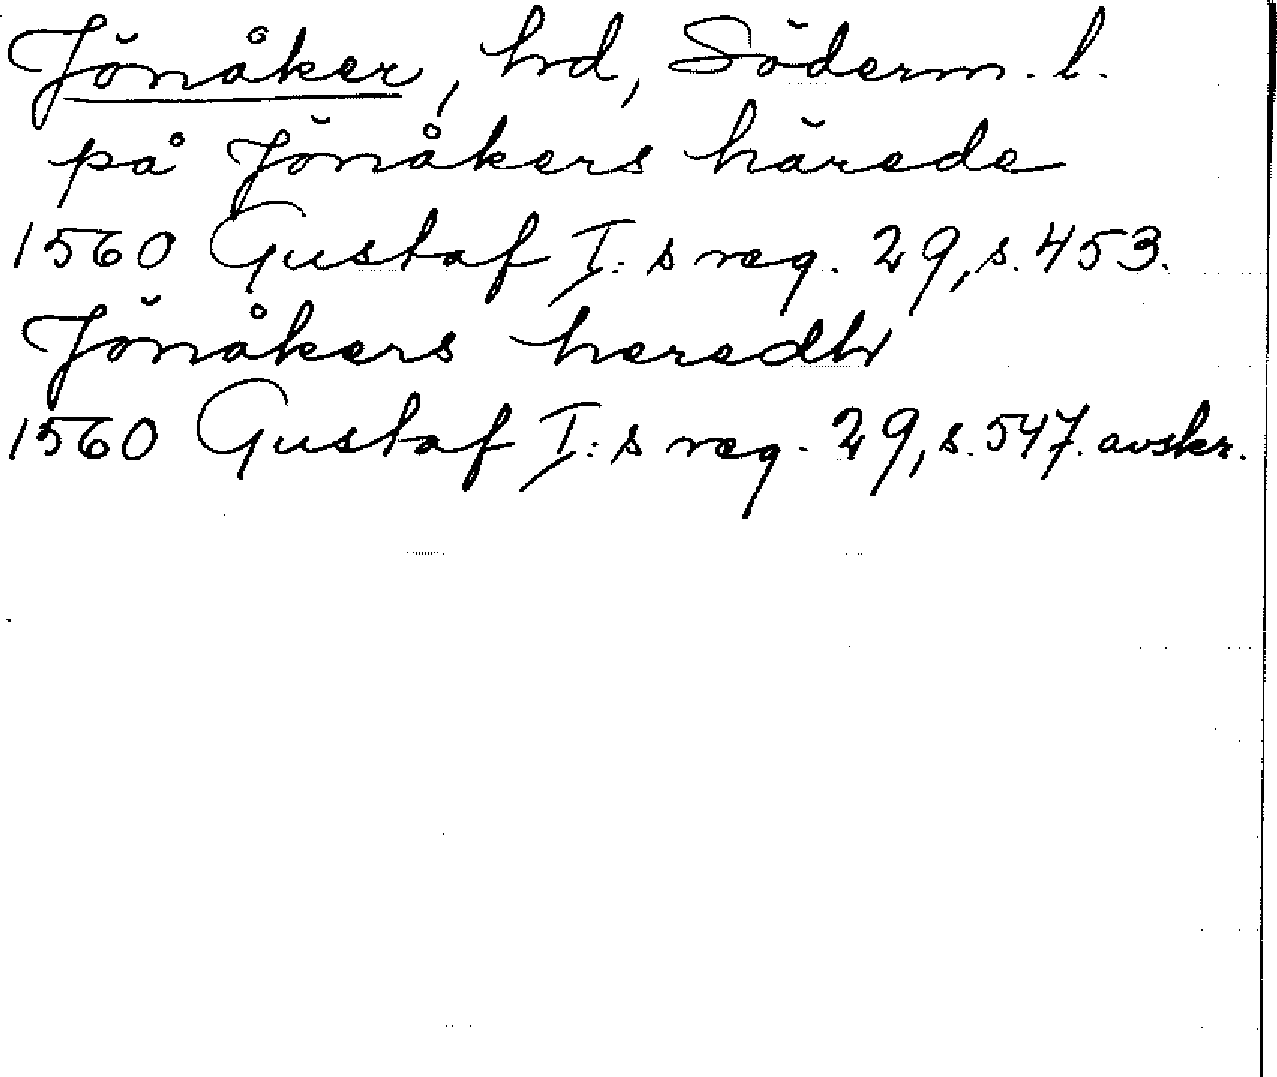 Jönåker, hd, Söderm. l.
på Jönåkers härede
1560 Gustaf I:s reg. 29, s. 453.
Jönåkers heredh
1560 Gustaf I:s reg. 29, s. 547. avskr.